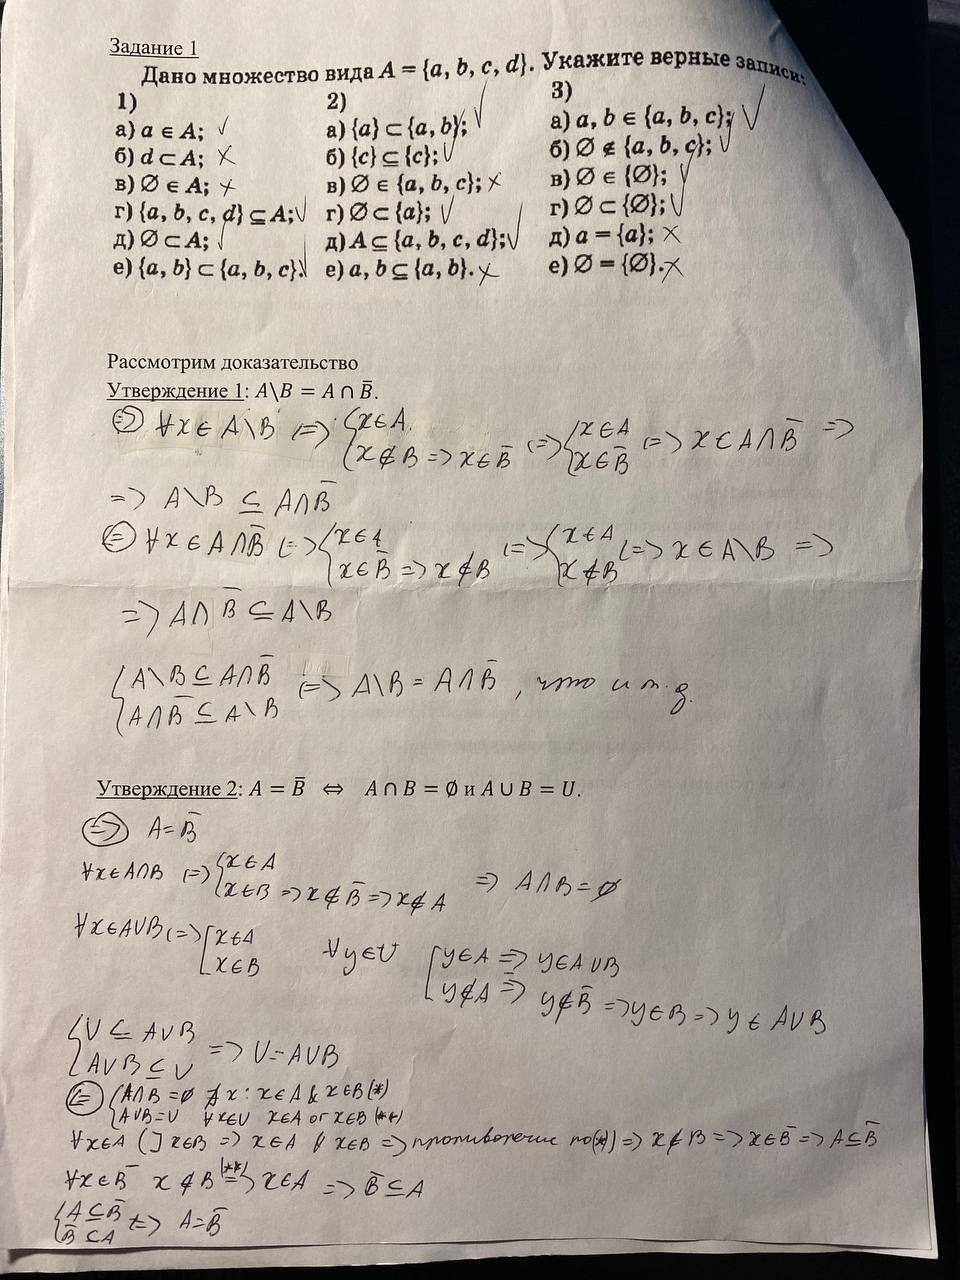 Задание 1
Дано множество вида A = {a, b, c, d}. Укажите верные записи:
1)
а) a ∈ A; ✓
б) d ⊂ A; ×
в) ∅ ∈ A; ×
г) {a, b, c, d} ⊆ A; ✓
д) ∅ ⊂ A; ✓
е) {a, b} ⊂ {a, b, c}. ✓
2)
а) {a} ⊂ {a, b}; ✓
б) {c} ⊆ {c}; ✓
в) ∅ ∈ {a, b, c}; ×
г) ∅ ⊂ {a}; ✓
д) A ⊆ {a, b, c, d}; ✓
е) a, b ⊆ {a, b}. ×
3)
а) a, b ∈ {a, b, c}; ✓
б) ∅ ∉ {a, b, c}; ✓
в) ∅ ∈ {∅}; ✓
г) ∅ ⊂ {∅}; ✓
д) a = {a}; ×
е) ∅ = {∅}. ×
Рассмотрим доказательство
Утверждение 1: A\B = A ∩ B̅.
⇒ ∀x ∈ A\B ⇔ { x ∈ A. x ∉ B ⇒ x ∈ B̅ ⇔ { x ∈ A x ∈ B̅ ⇔ x ∈ A ∩ B̅ ⇒
⇒ A\B ⊆ A ∩ B̅
⇐ ∀x ∈ A ∩ B̅ ⇔ { x ∈ A x ∈ B̅ ⇒ x ∉ B ⇔ { x ∈ A x ∉ B ⇔ x ∈ A\B ⇒
⇒ A ∩ B̅ ⊆ A\B
{ A\B ⊆ A ∩ B̅ A ∩ B̅ ⊆ A\B ⇔ A\B = A ∩ B̅, что и т.д.
Утверждение 2: A = B̅ ⇔ A ∩ B = ∅ и A ∪ B = U.
⇒ A = B̅
∀x ∈ A ∩ B ⇔ { x ∈ A x ∈ B ⇒ x ∉ B̅ ⇒ x ∉ A ⇒ A ∩ B = ∅
∀x ∈ A ∪ B ⇔ [ x ∈ A x ∈ B ∀y ∈ U [ y ∈ A ⇒ y ∈ A ∪ B y ∉ A ⇒ y ∉ B̅ ⇒ y ∈ B ⇒ y ∈ A ∪ B
{ U ⊆ A ∪ B A ∪ B ⊆ U ⇒ U = A ∪ B
⇐ { A ∩ B = ∅ ∄x : x ∈ A & x ∈ B (*)
A ∪ B = U ∀x ∈ U x ∈ A or x ∈ B (**)
∀x ∈ A (] x ∈ B ⇒ x ∈ A & x ∈ B ⇒ противоречие по(*)) ⇒ x ∉ B ⇒ x ∈ B̅ ⇒ A ⊆ B̅
∀x ∈ B̅ x ∉ B (**)⇒ x ∈ A ⇒ B̅ ⊆ A
{ A ⊆ B̅ B̅ ⊆ A ⇔ A = B̅